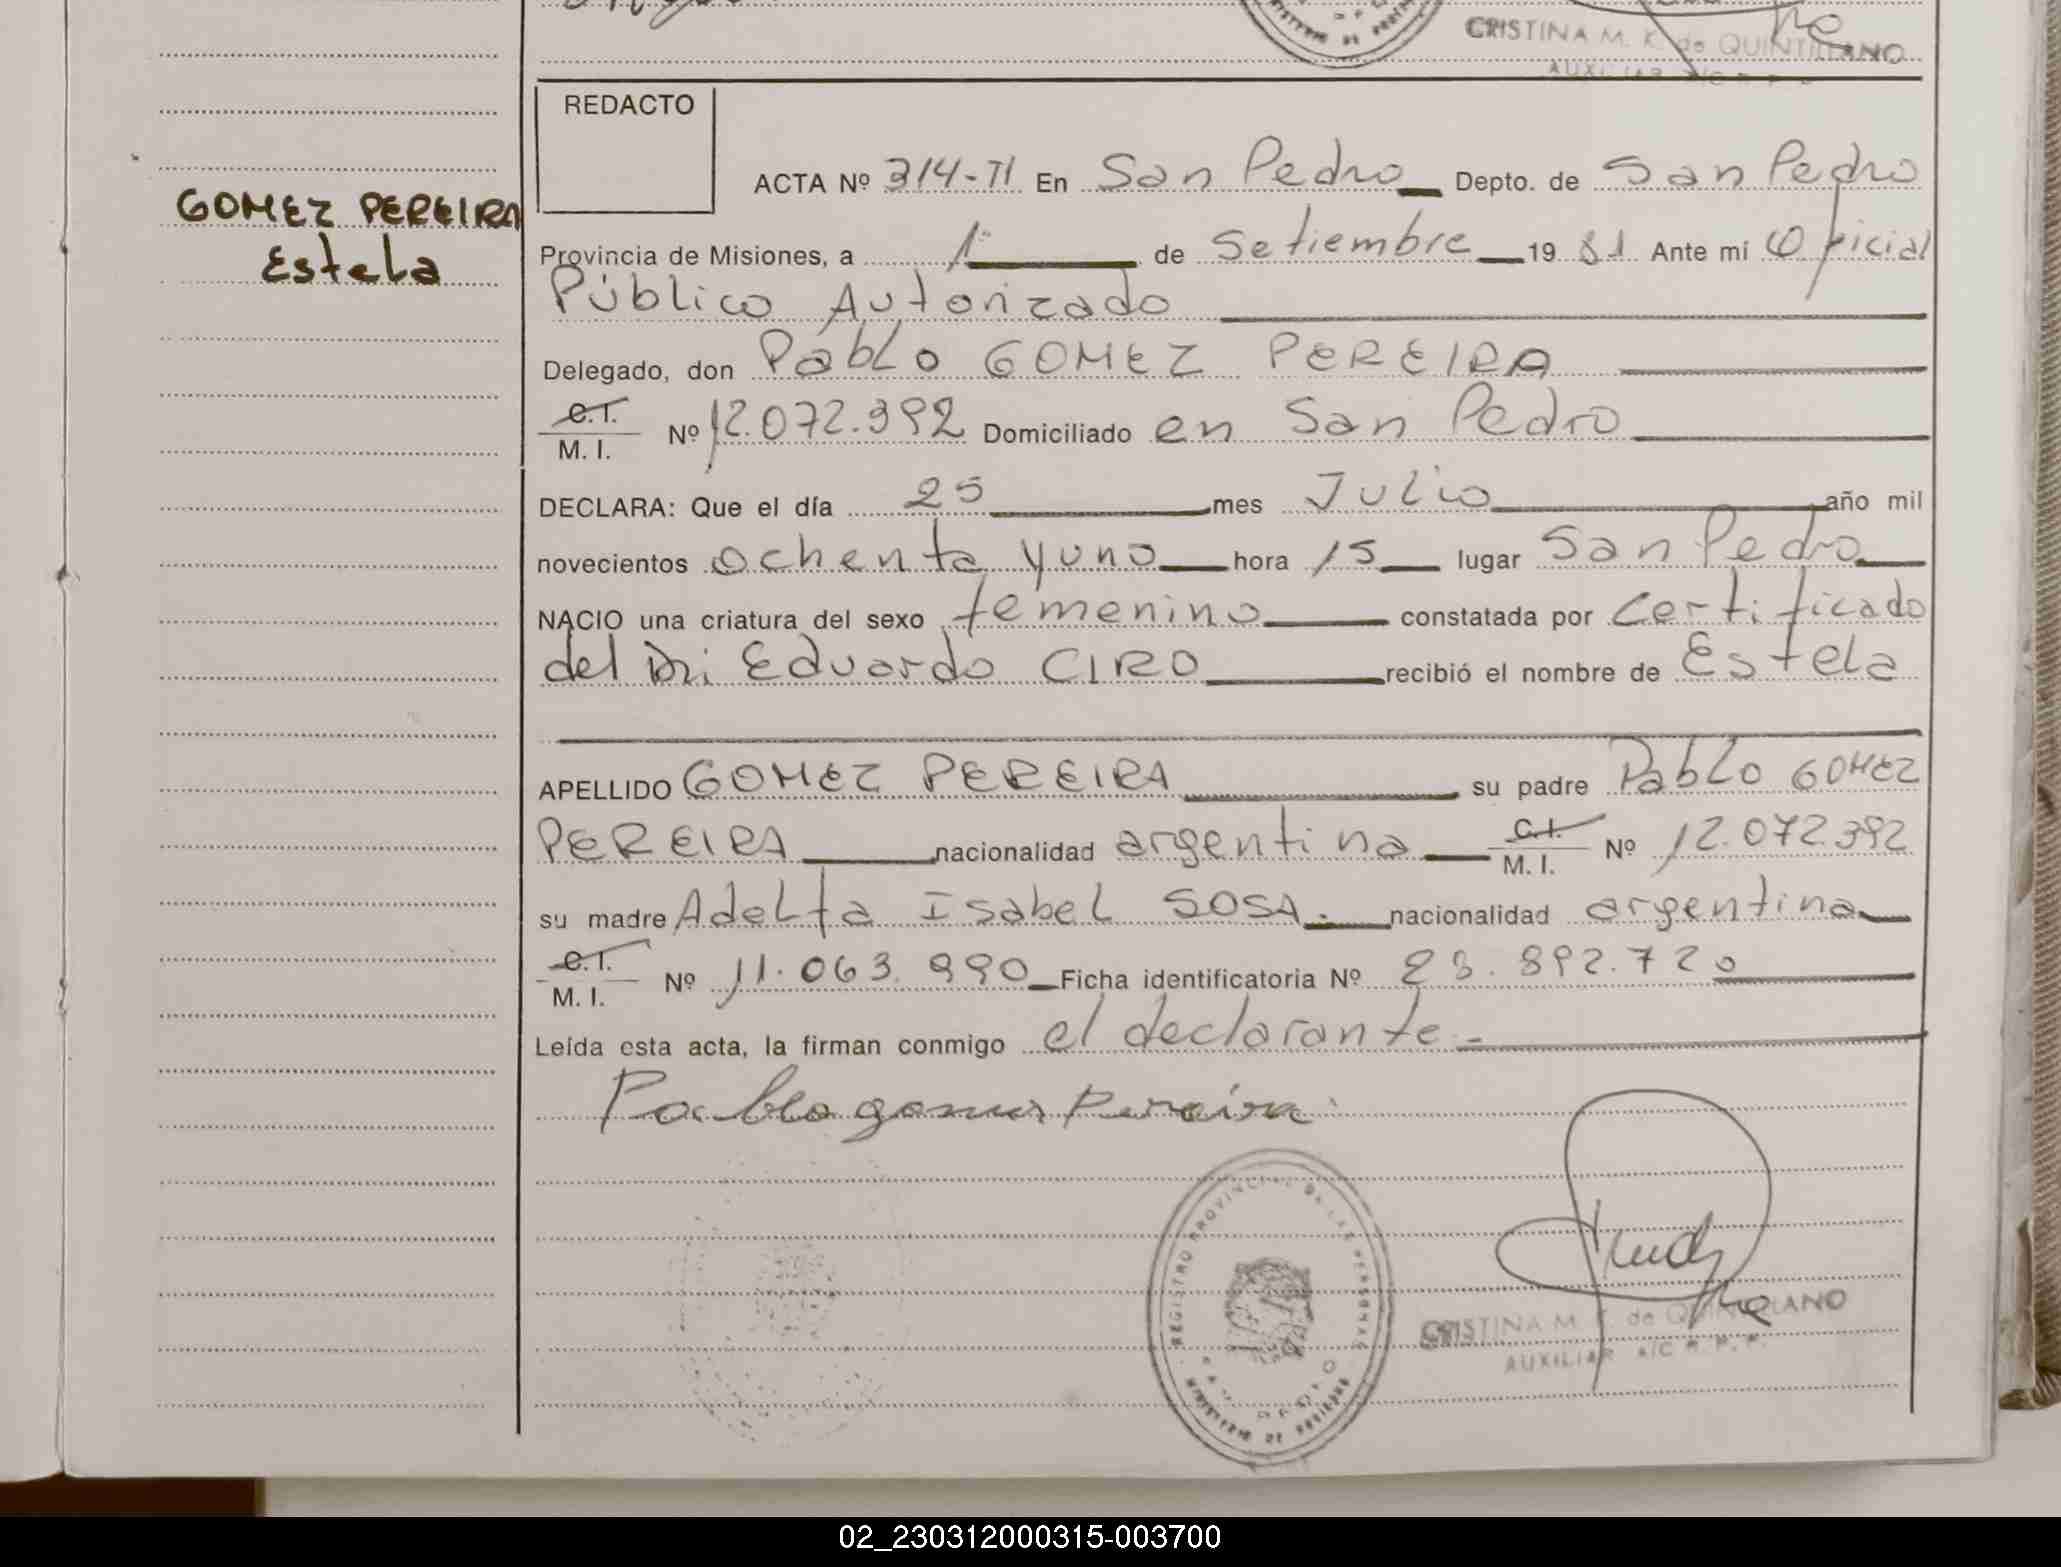 CRISTINA M. K. de QUINTILLANO
REDACTO
ACTA Nº 314-TI En San Pedro Depto. de San Pedro
GOMEZ PEREIRA
Estela
Provincia de Misiones, a 1º de Setiembre 1981 Ante mi Oficial
Público Autorizado
Delegado, don Pablo GOMEZ PEREIRA
C.I.
M. I. Nº 12.072.392 Domiciliado en San Pedro
DECLARA: Que el día 25 mes Julio año mil
novecientos ochenta y uno hora 15 lugar San Pedro
NACIO una criatura del sexo femenino constatada por certificado
del Dr. Eduardo CIRO recibió el nombre de Estela
APELLIDO GOMEZ PEREIRA su padre Pablo GOMEZ
PEREIRA nacionalidad argentina C.I. M. I. Nº 12.072.392
su madre Adelfa Isabel SOSA. nacionalidad argentina
C.I.
M. I. Nº 11.063.990 Ficha identificatoria Nº 28.892.720
Leída esta acta, la firman conmigo el declarante.-
Pablo gomes Pereira
REGISTRO PROVINCIAL DE LAS PERSONAS
CRISTINA M. K. de QUINTILLANO
AUXILIAR A/C R. P. P.
02_230312000315-003700